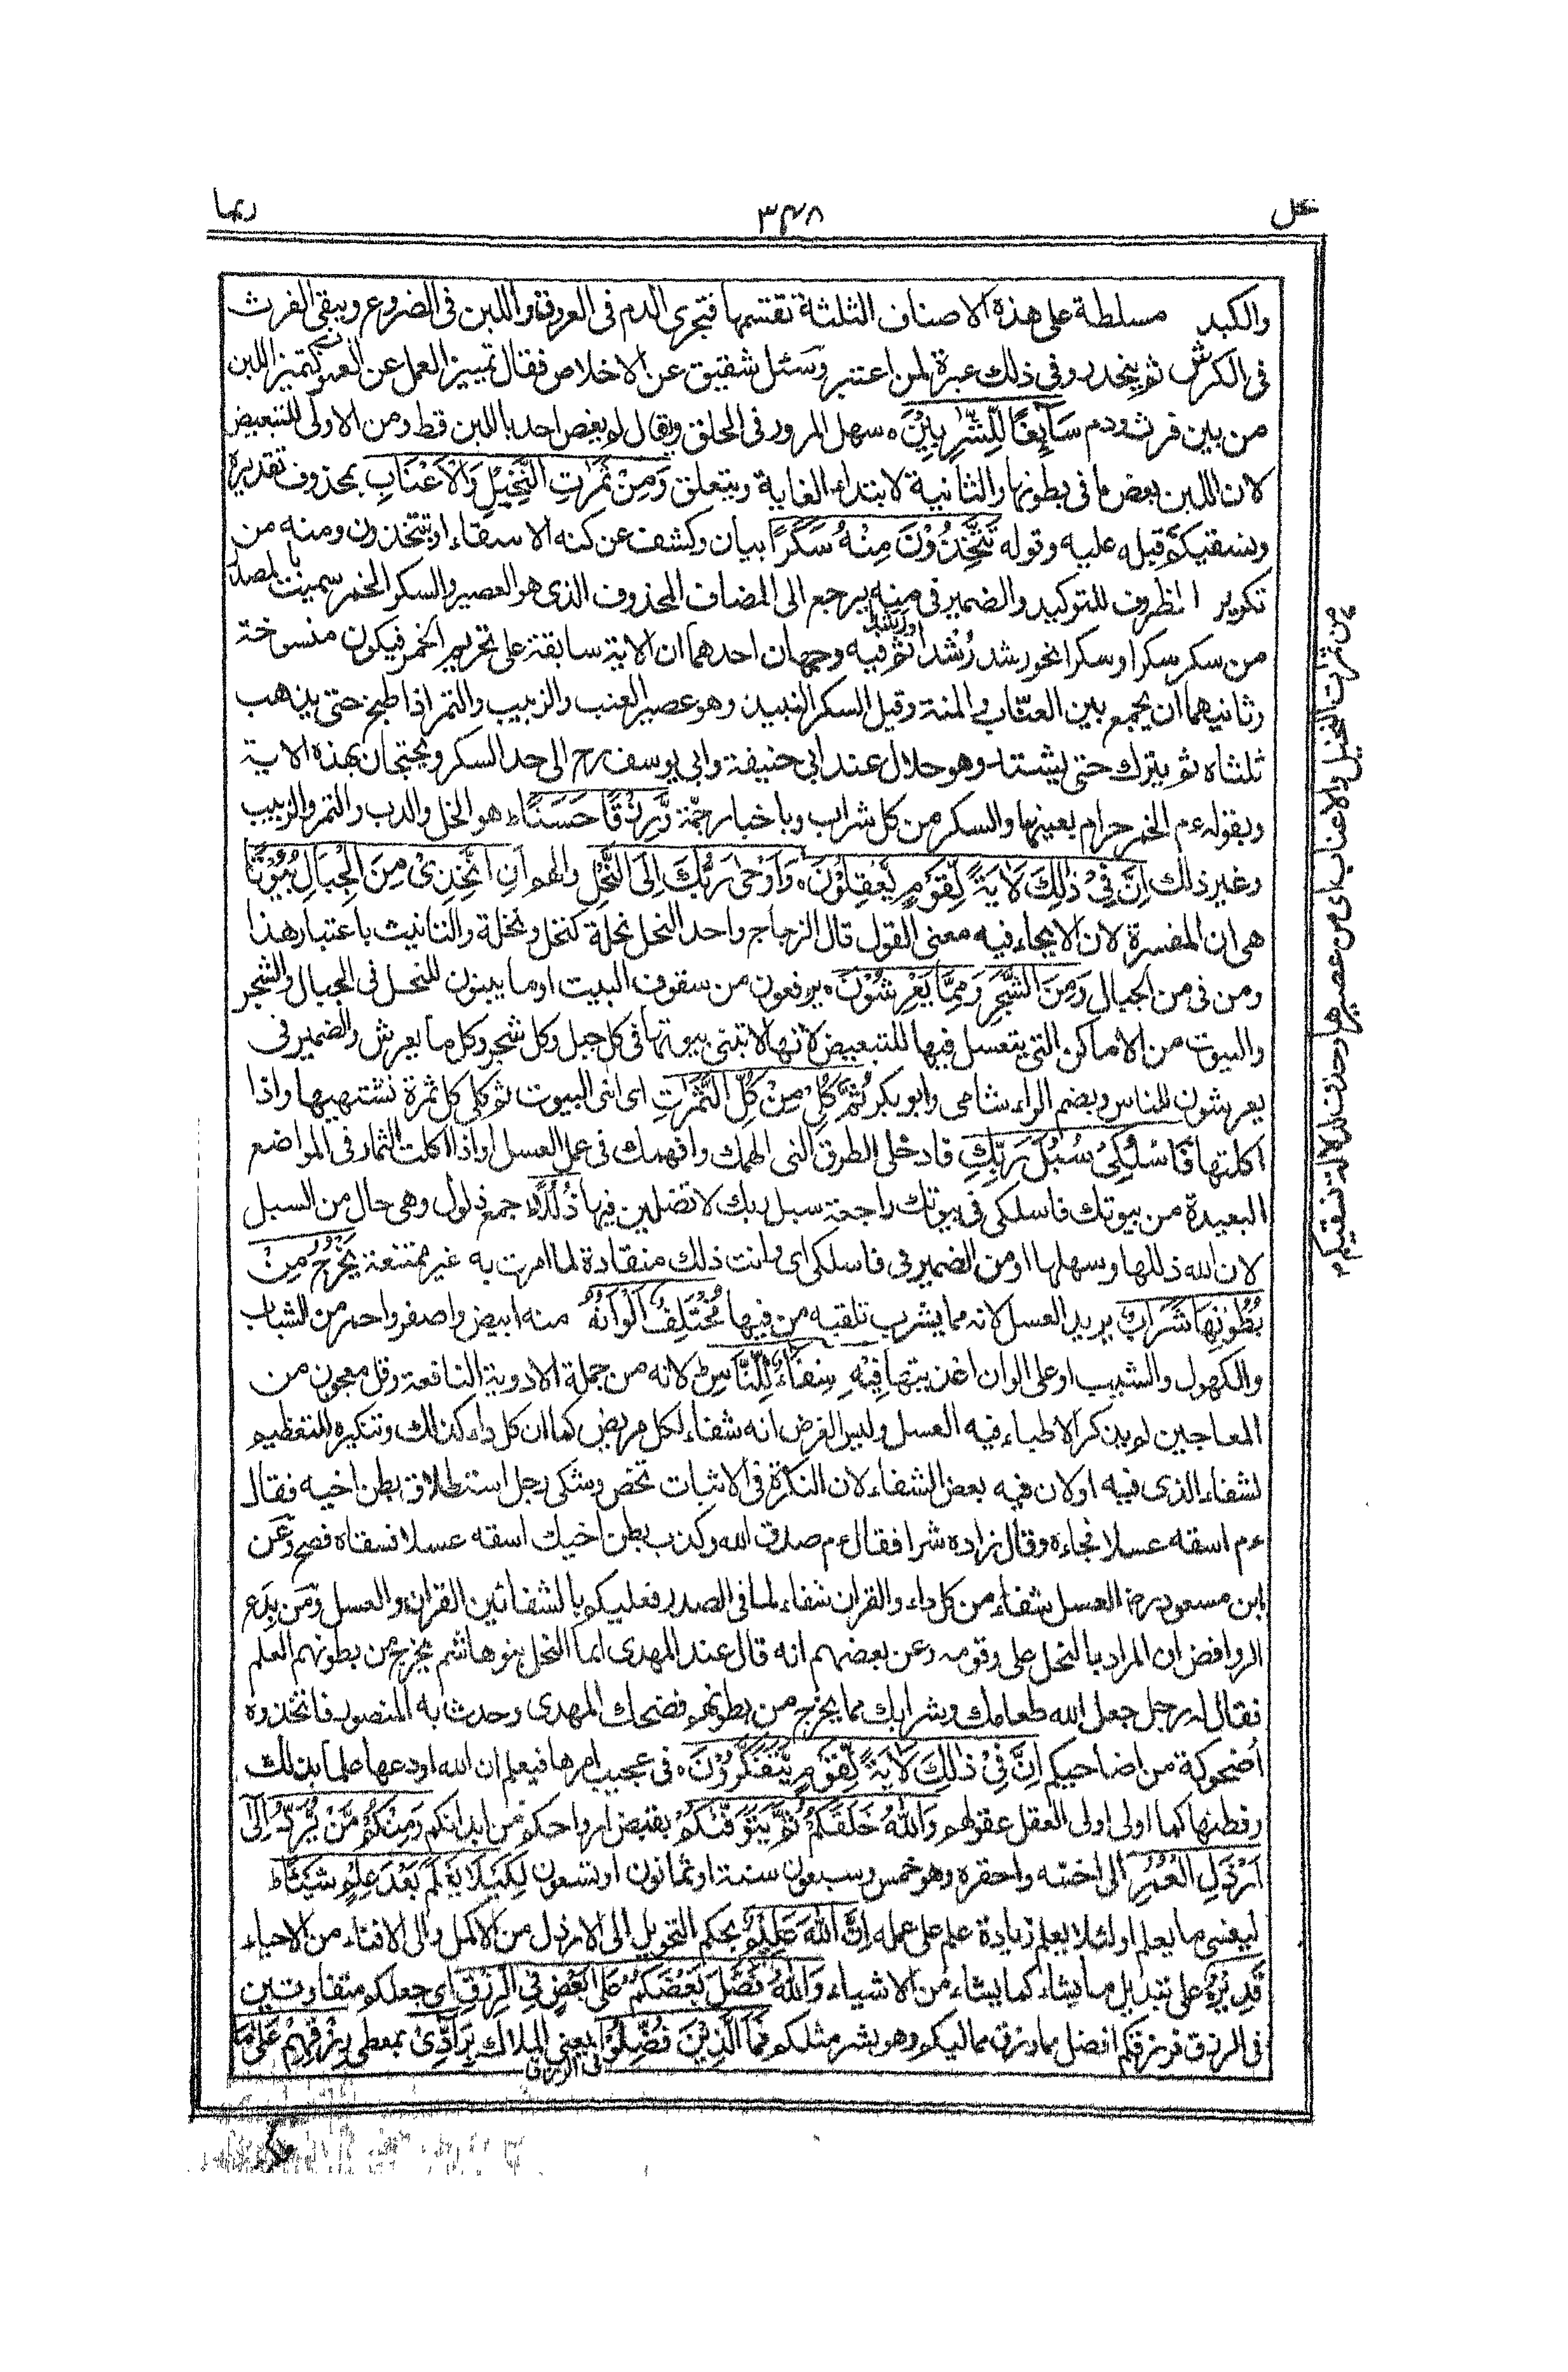 نحل
٣٤٨
ربما
والكبد مسلطة على هذه الاصناف الثلثة تقتسمها فتجرى الدم فى العروق واللبن فى الضروع ويبقى الفرث
فى الكرش ثم ينحدر وفى ذلك عبرة لمن اعتبر وسئل شقيق عن الاخلاص فقال تمييز العمل عن العيوب كتميز اللبن
من بين فرث ودم سَآئِغًا لِّلشّٰرِبِيْنَ ه سهل المرور فى الحلق ويقال لم يغص احد باللبن قط ومن الاولى للتبعيض
لان اللبن بعض ما فى بطونها والثانية لابتداء الغاية ويتعلق وَمِنْ ثَمَرٰتِ النَّخِيْلِ وَالْاَعْنَابِ بمحذوف تقديره
ونسقيكم قبله عليه وقوله تَتَّخِذُوْنَ مِنْهُ سَكَرًا بيان وكشف عن كنه الاسقاء او تتخذون ومنه من
تكرير الظروف للتوكيد والضمير فى منه يرجع الى المضاف المحذوف الذى هو العصير والسكر الخمر سميت بالمصدر
من سكر سكرا وسكرا نحو رشد رُشدا ورَشَدا ثم فيه وجهان احدهما ان الاية سابقة على تحريم الخمر فيكون منسوخة
وثانيهما ان يجمع بين العتاب والمنة وقيل السكر النبيذ وهو عصير العنب والزبيب والتمر اذا طبخ حتى يذهب
ثلثاه ثم يترك حتى يشتد وهو حلال عند ابى حنيفة وابى يوسف رح الى حد السكر ويحتجان بهذه الاية
وبقوله ءم الخمر حرام بعينها والسكر من كل شراب وباخبار جمّة وَّرِزْقًا حَسَنًا ط هو الخل والدب والتمر والزبيب
وغير ذلك اِنَّ فِىْ ذٰلِكَ لَاٰيَةً لِّقَوْمٍ يَّعْقِلُوْنَ ه وَاَوْحٰى رَبُّكَ اِلَى النَّحْلِ والهم اَنِ اتَّخِذِىْ مِنَ الْجِبَالِ بُيُوْتًا
هى ان المفسرة لان الايحاء فيه معنى القول قال الزجاج واحد النحل نحلة كنخل ونخلة والتانيث باعتبار هذا
ومن فى من الجبال وَمِنَ الشَّجَرِ وَمِمَّا يَعْرِشُوْنَ ه يرفعون من سقوف البيت او ما يبنون للنحل فى الجبال والشجر
والبيوت من الاماكن التى يتعسل فيها للتبعيض لانها لا تبنى بيوتها فى كل جبل وكل شجر وكل ما يعرش والضمير فى
يعرشون للناس وبضم الراء شامى وابو بكر ثُمَّ كُلِىْ مِنْ كُلِّ الثَّمَرٰتِ اى ابنى البيوت ثم كلى كل ثمرة تشتهيها واذا
اكلتها فَاسْلُكِىْ سُبُلَ رَبِّكِ فادخلى الطرق التى الهمك وافهمك فى عمل العسل او اذا اكلت الثمار فى المواضع
البعيدة من بيوتك فاسلكى فى بيوتك راجعة سبل ربك لا تضلين فيها ذُلُلًا ط جمع ذلول وهى حال من السبل
لان الله ذللها وسهلها او من الضمير فى فاسلكى اى وانت ذلك منقادة لما امرت به غير ممتنعة يَخْرُجُ مِنْ
بُطُوْنِهَا شَرَابٌ يريد العسل لانه مما يشرب تلقيه من فيها مُّخْتَلِفٌ اَلْوَانُهٗ منه ابيض واصفر واحمر من الشباب
والكهول والشيب او على الوان اغذيتها فِيْهِ شِفَآءٌ لِّلنَّاسِ ط لانه من جملة الادوية النافعة وقل معجون من
المعاجين لم يذكر الاطباء فيه العسل وليس الغرض انه شفاء لكل مريض كما ان كل داء كذلك وتنكيره للتعظيم
لشفاء الذى فيه او لان فيه بعض الشفاء لان النكرة فى الاثبات تخص وشكى رجل استطلاق بطن اخيه فقال
ءم اسقه عسلا فجاءه وقال زاده شرا فقال ءم صدق الله وكذب بطن اخيك اسقه عسلا فسقاه فصح وعن
ابن مسعود رض العسل شفاء من كل داء والقران شفاء لما فى الصدر فعليكم بالشفائين القران والعسل ومن بدع
الروافض ان المراد بالنحل على وقومه وعن بعضهم انه قال عند المهدى انما النحل بنو هاشم يخرج من بطونهم العلم
فقال له رجل جعل الله طعامك وشرابك مما يخرج من بطونهم فضحك المهدى وحدث به المنصور فاتخذوه
أضحوكة من اضاحيكم اِنَّ فِىْ ذٰلِكَ لَاٰيَةً لِّقَوْمٍ يَّتَفَكَّرُوْنَ ه فى عجيب امرها فيعلم ان الله اودعها علما بذلك
وفطنها كما اولى اولى العقل عقولهم وَاللّٰهُ خَلَقَكُمْ ثُمَّ يَتَوَفّٰىكُمْ بقبض ارواحكم من ابدانكم وَمِنْكُمْ مَّنْ يُّرَدُّ اِلٰى
اَرْذَلِ الْعُمُرِ الى اخسه واحقره وهو خمس وسبعون سنة او ثمانون او تسعون لِكَيْلَا يَعْلَمَ بَعْدَ عِلْمٍ شَيْئًا ط
لينسى ما يعلم او لئلا يعلم زيادة علم على عمله اِنَّ اللّٰهَ عَلِيْمٌ بحكم التحويل الى الارذل من الاكمل والى الافناء من الاحياء
قَدِيْرٌ ه على تبديل ما يشاء كما يشاء من الاشياء وَاللّٰهُ فَضَّلَ بَعْضَكُمْ عَلٰى بَعْضٍ فِى الرِّزْقِ اى جعلكم متفاوتين
فى الرزق فرزقكم افضل مما رزق مماليكم وهو بشر مثلكم فَمَا الَّذِيْنَ فُضِّلُوْا فى الرزق يعنى الملاك بِرَآدِّىْ بمعطى رِزْقِهِمْ عَلٰى مَا
من ثمرات النخيل والاعناب اى من عصيرها وحذف لدلالة نسقيكم